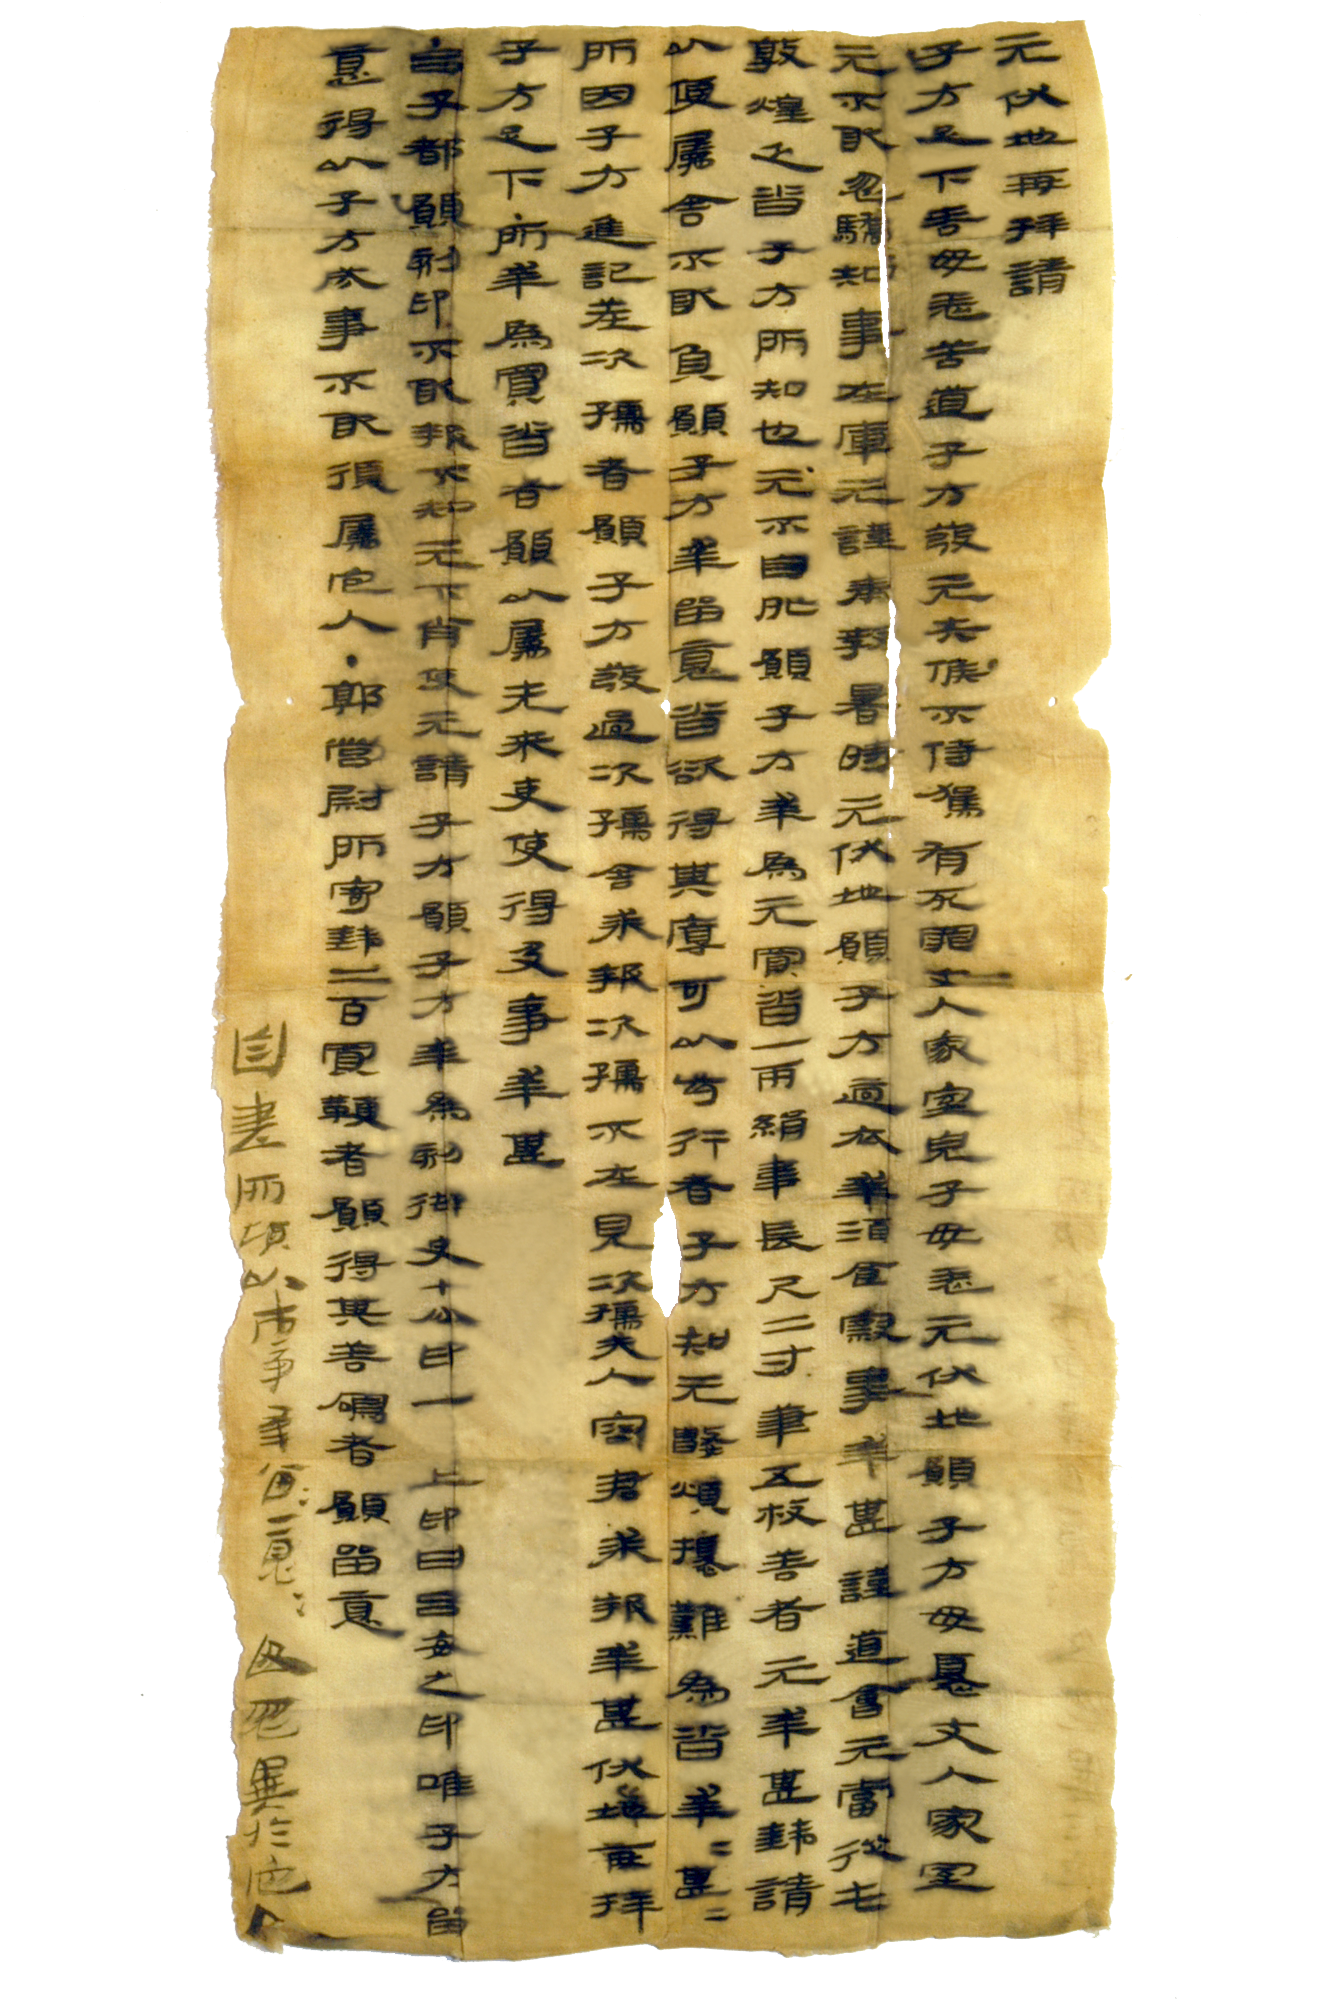 元伏地再拜請
子方足下善毋恙苦道子方發元失候不侍駕有死罪丈人家室兒子毋恙元伏地願子方毋憂丈人家室
元不敢忽驕知事在庫元謹奉教暑時元伏地願子方適衣幸酒食察事幸甚謹道會元當從屯
敦煌乏沓子方所知也元不自外願子方幸為元買沓一兩絹韋長尺二寸筆五枚善者元幸甚錢請
以便屬舍不敢負願子方幸留意沓欲得其厚可以步行者子方知元數煩擾難為沓幸=甚=
所因子方進記差次孺者願子方發過次孺舍求報次孺不在見次孺夫人容君求報幸甚伏地再拜
子方足下所幸為買沓者願以屬先來吏使得及事幸甚
呂子都願刻印不敢報不知元不肖使元請子方願子方幸為刻御史七分印一 上印曰呂安之印唯子方留
意得以子方成事不敢復屬它人●郭營尉所寄錢二百買鞭者願得其善鳴者願留意
自書所願以市事幸留=意=毋忽異於它人